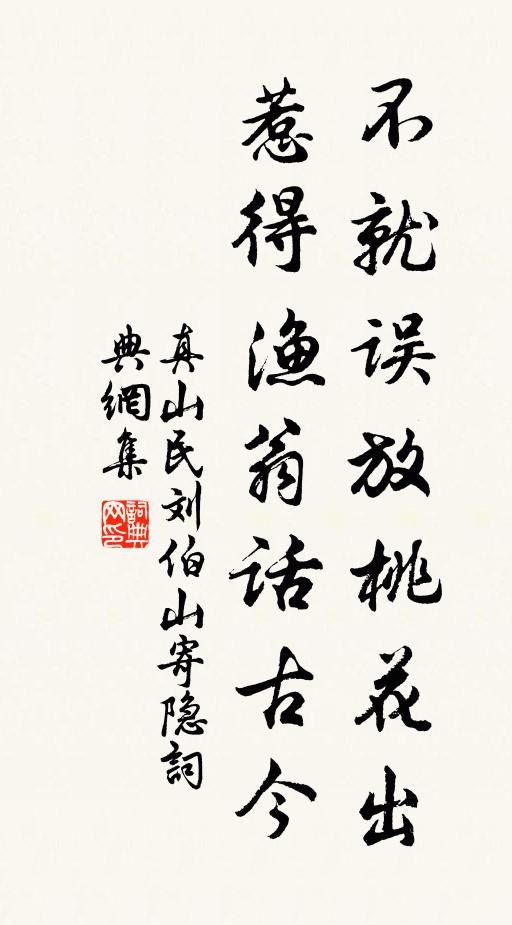 不就误放桃花出
惹得渔翁话古今
真山民刘伯山寄隐詞
典網集
詞典网印